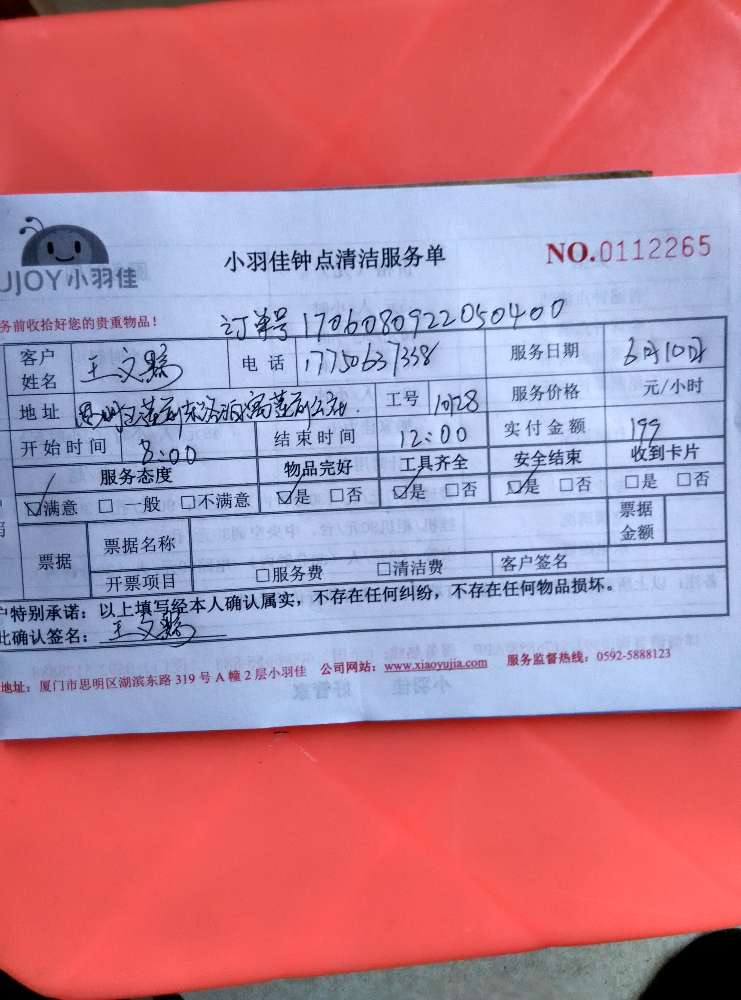 UJOY小羽佳
小羽佳钟点清洁服务单
NO.0112265
务前收拾好您的贵重物品！
订单号 1706080922050400
客户姓名 王文 电话 17750637338 服务日期 6月10日
地址 思明区莲前东路 莲前公寓 工号 1028 服务价格 元/小时
开始时间 8:00 结束时间 12:00 实付金额 199
服务态度 物品完好 工具齐全 安全结束 收到卡片
☑满意 □一般 □不满意 ☑是 □否 ☑是 □否 ☑是 □否 □是 □否
票据 票据名称 票据金额
开票项目 □服务费 □清洁费 客户签名
户特别承诺：以上填写经本人确认属实，不存在任何纠纷，不存在任何物品损坏。
此确认签名：王文
地址：厦门市思明区湖滨东路 319 号 A 幢 2 层小羽佳 公司网站：www.xiaoyujia.com 服务监督热线：0592-5888123